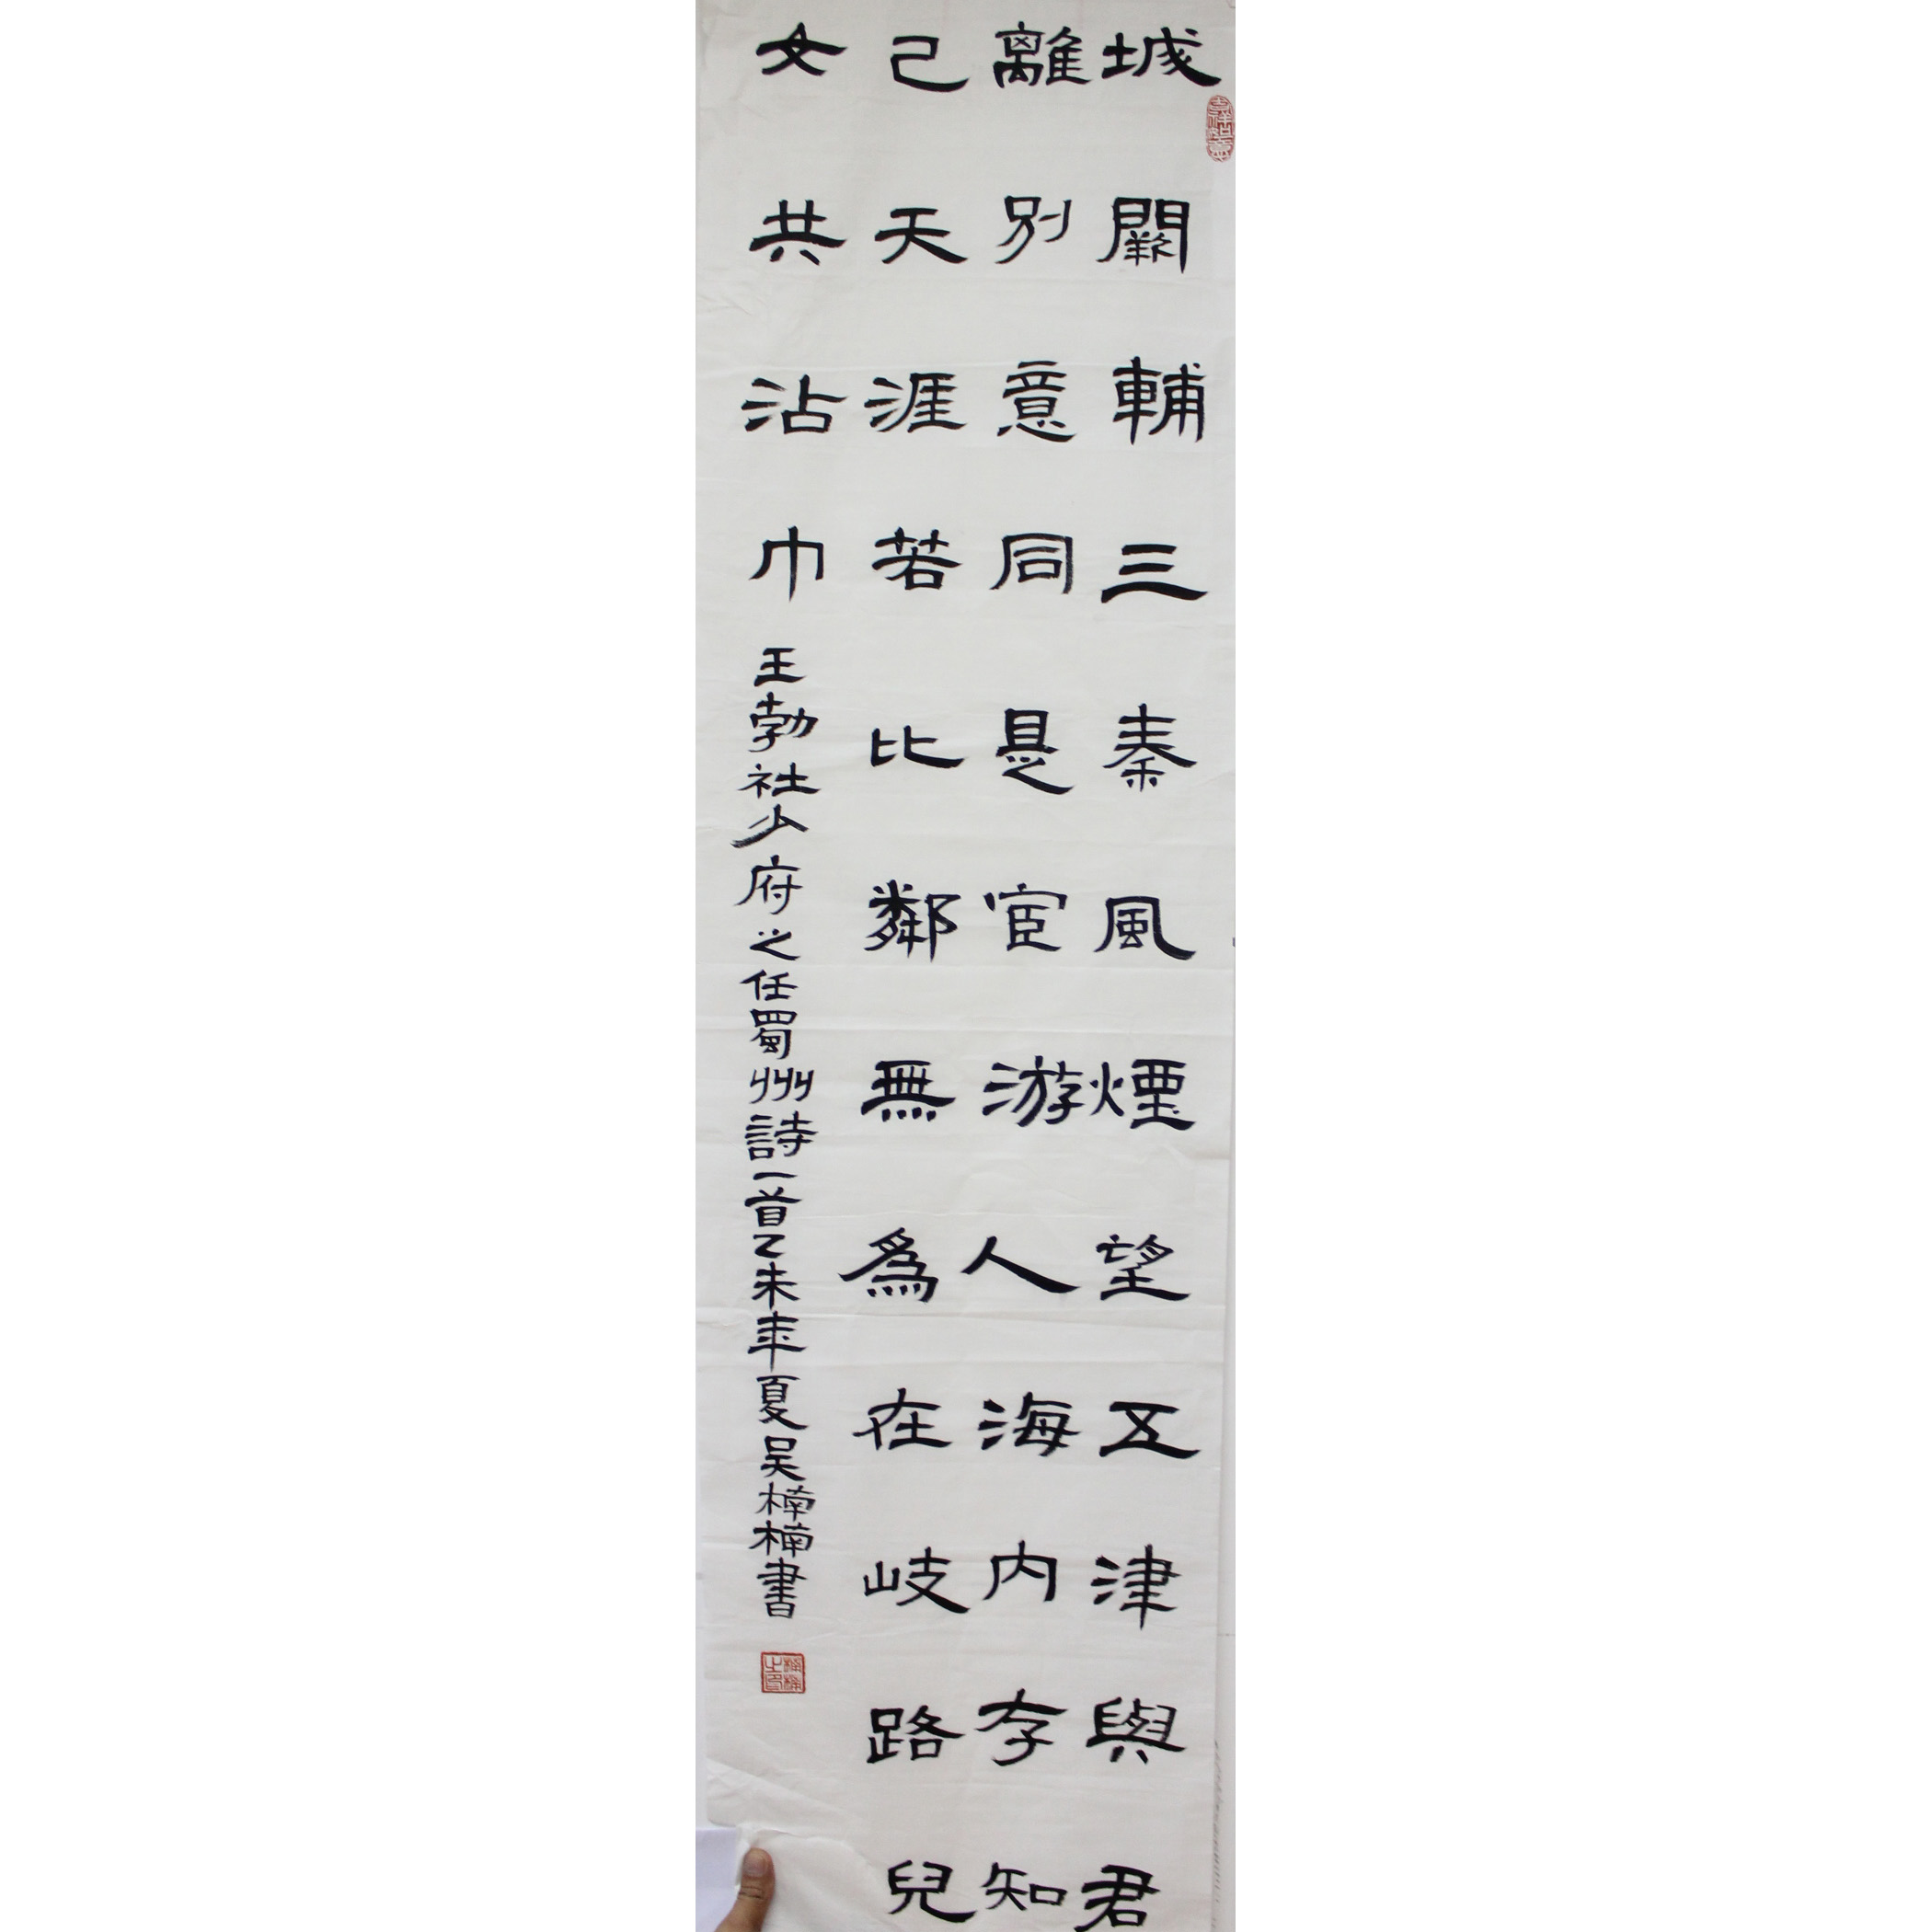 城闕輔三秦風煙望五津與君
離別意同是宦游人海内存知
己天涯若比鄰無為在岐路兒
女共沾巾
王勃社少府之任蜀州詩一首乙未年夏吴楠楠書
吉祥如意
楠楠之印